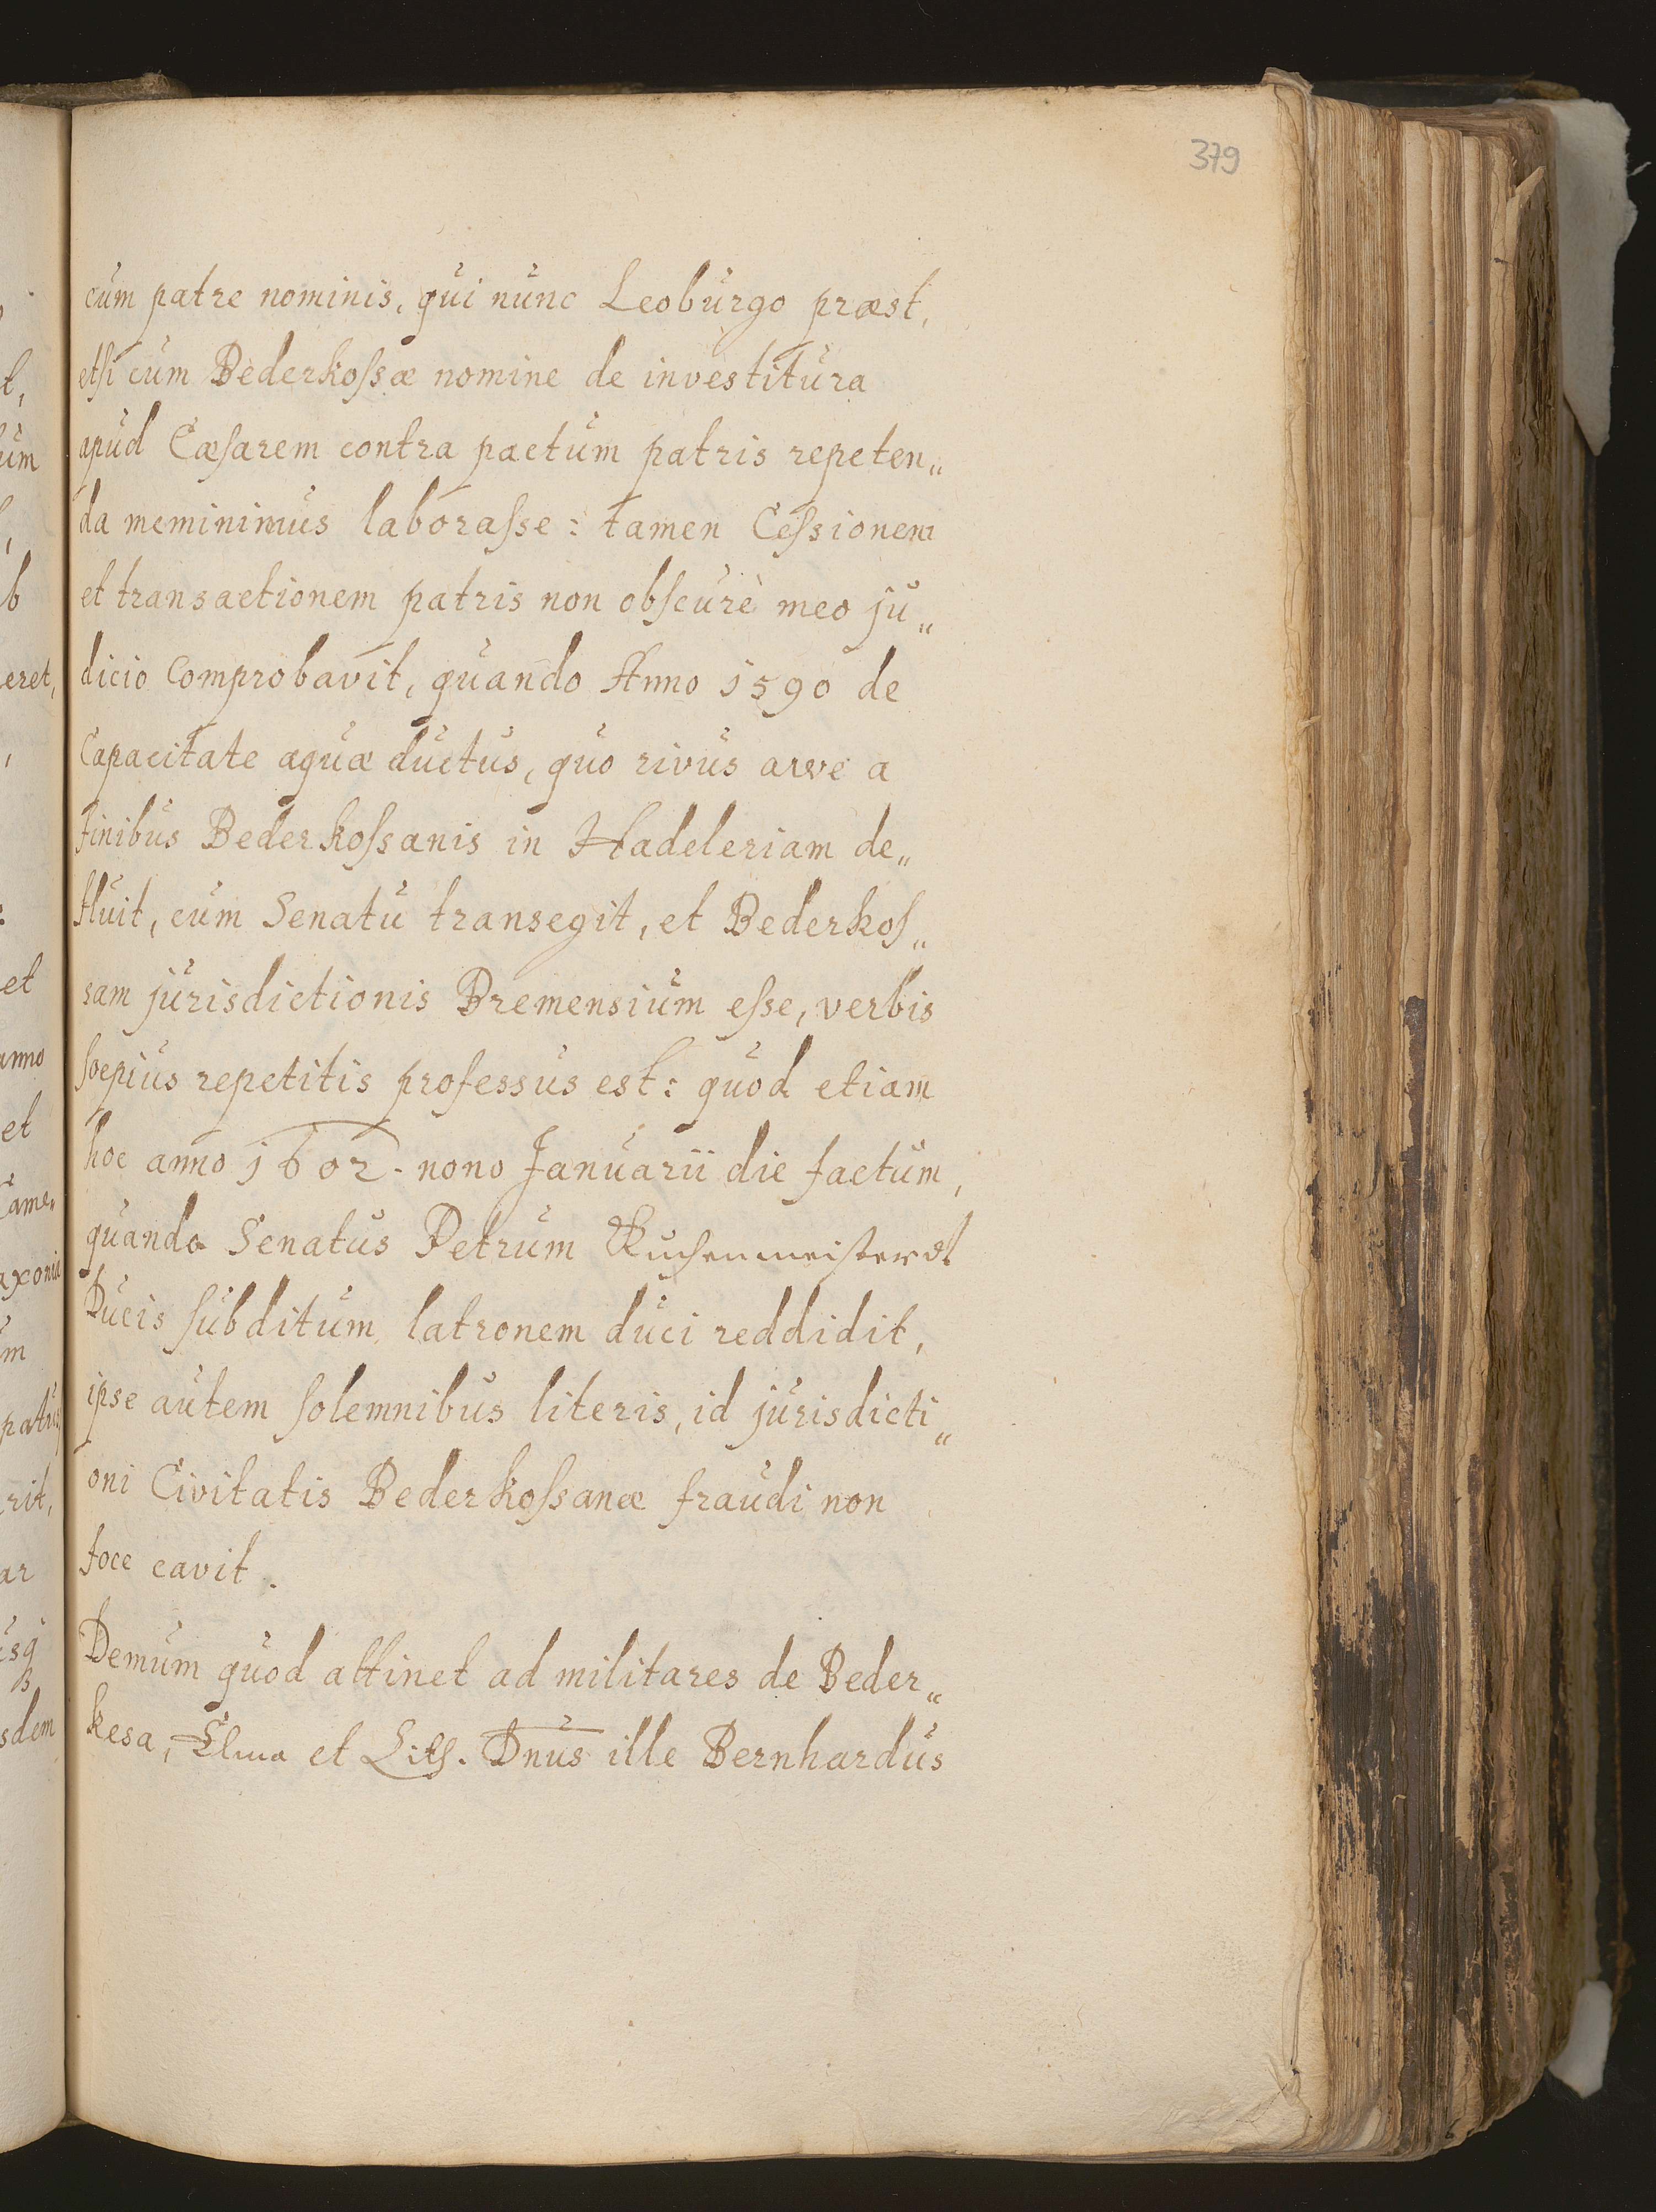 379
cum patre nominis, qui nunc Leoburgo præst,
etsi cum Bederkoſsæ nomine de investitura
apud Cæſarem contra pactum patris repeten„
da meminimus laboraſse: tamen Ceſsionem
et transactionem patris non obſcurè meo ju„
dicio comprobavit, quando Anno 1590 de
Capacitate aquæ ductus, quo rivus arve a
finibus Bederkoſsanis in Hadeleriam de„
fluit, cum Senatu transegit, et Bederkoſ„
sam jurisdictionis Bremensium eſse, verbis
ſoepius repetitis professus est: quod etiam
hoc anno 1602. nono Januarii die factum,
quando Senatus Petrum Kuchenmeister dt
Ducis ſubditum, latronem duci reddidit,
ipse autem ſolemnibus literis, id jurisdicti„
oni Civitatis Bederkoſsanæ fraudi non
foce cavit.
Demum quod attinet ad militares de Beder„
kesa, Elma et Lith. Dnus ille Bernhardus